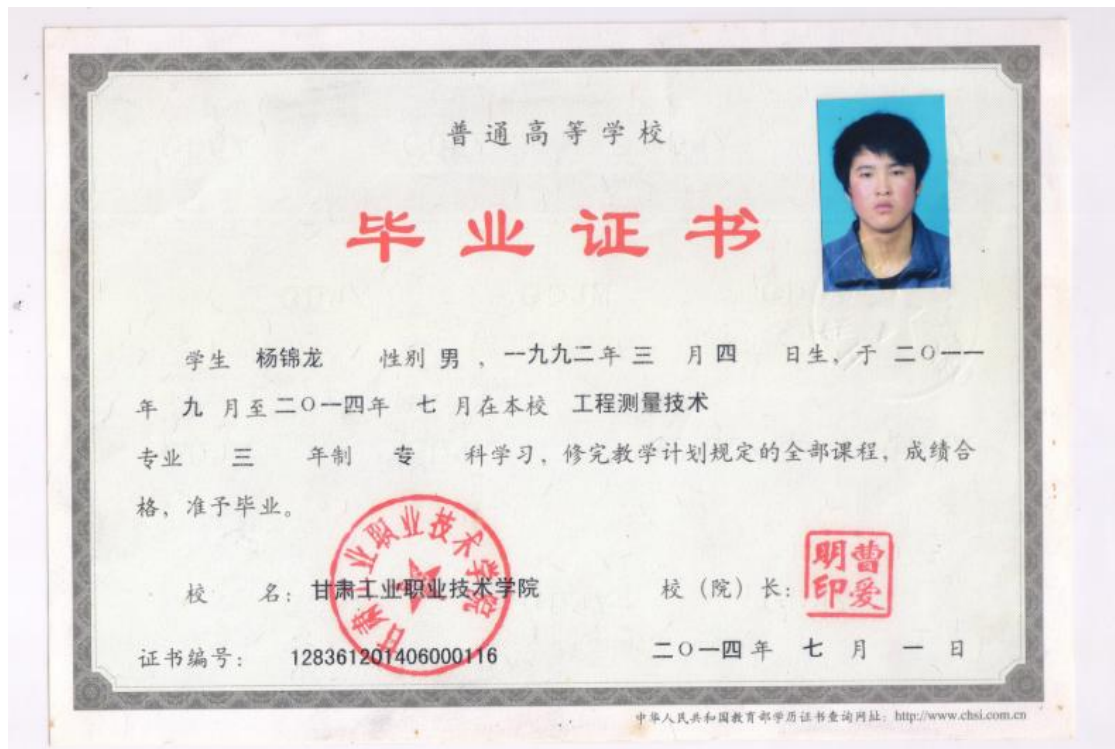 普通高等学校
毕业证书
学生 杨锦龙 性别 男 ，一九九二年 三 月 四 日生，于 二〇一一
年 九 月至 二〇一四年 七 月在本校 工程测量技术
专业 三 年制 专 科学习，修完教学计划规定的全部课程，成绩合
格，准予毕业。
甘肃工业职业技术学院
曹爱明印
校 名：甘肃工业职业技术学院 校（院）长：
证书编号： 128361201406000116 二〇一四年 七 月 一 日
中华人民共和国教育部学历证书查询网址：http://www.chsi.com.cn